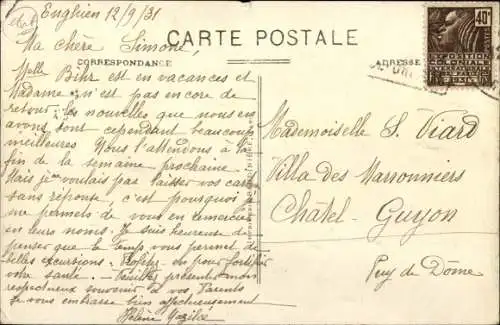 Enghien 12/9/31
Ma chère Simone,
CARTE POSTALE
CORRESPONDANCE
ADRESSE
40c
EXPOSITION
COLONIALE
Melle Bihr est en vacances et
Madame n'est pas encore de
retour. Les nouvelles que nous en
avons sont cependant beaucoup
meilleures. Nous l'attendons à la
fin de la semaine prochaine.
Mais je ne voulais pas laisser vos cartes
sans réponse, c'est pourquoi je
me permets de vous en remercier
en leurs noms. Je suis heureuse de
penser que le temps vous permet de
belles excursions. Profitez-en pour fortifier
votre santé. Veuillez présenter mon
respectueux souvenir à vos Parents
Je vous embrasse bien affectueusement
Hélène
Mademoiselle S. Viard
Villa des Marronniers
Châtel-Guyon
Puy de Dôme